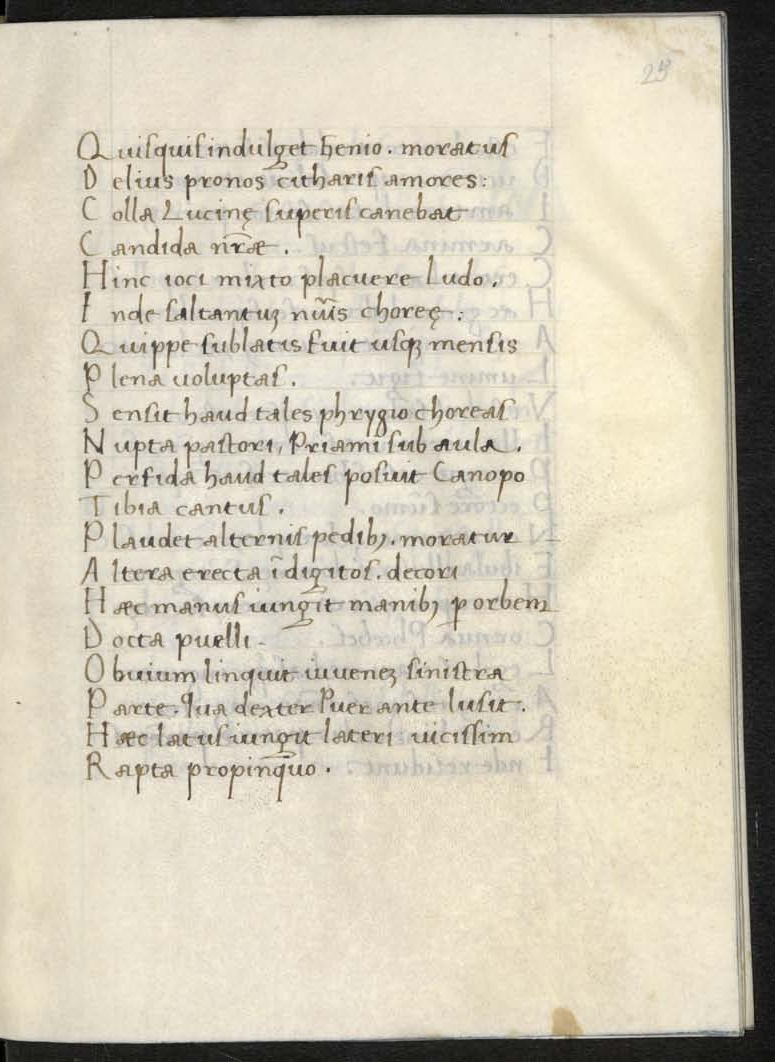 25
Quisquis indulget henio. moratus
Delius pronos citharis amores:
Colla Lucinę superis canebat
Candida nr̄æ.
Hinc ioci mixto placuere Ludo.
Inde saltantuꝫ choreę:
Quippe sublatis fuit usqꝫ mensis
Plena voluptas.
Sensit haud tales phrygio choreas
Nupta pastori, Priami sub aula.
Perfida haud tales posuit Canopo
Tibia cantus.
Plaudet alternis pedibꝫ. moratur
Altera erecta ī digitos. decori
Hæc manus iungit manibꝫ ꝑ orbem
Docta puelli
Obuium linquit iuueneꝫ sinistra
Parte. Qua dexter Puer ante lusit.
Hæc latus iungit lateri uicissim
Rapta propinq̄uo.